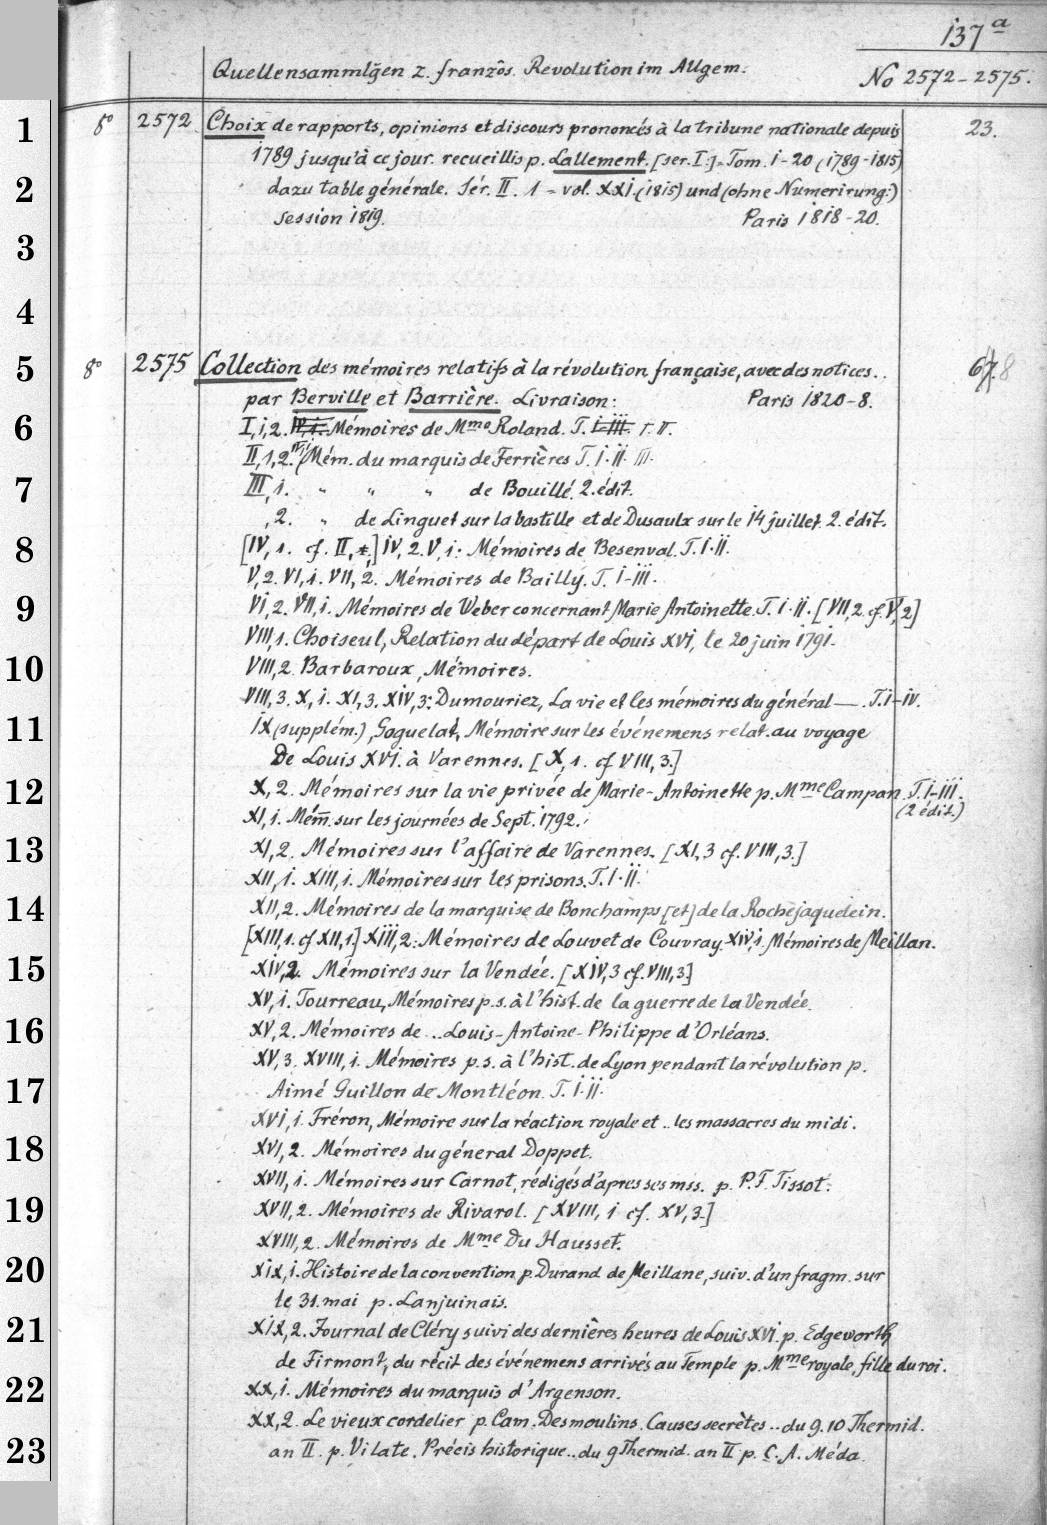 137a
Quellensammlg̅en z. französ. Revolution im Allgem.
No 2572-2575.
1
8° 2572 Choix de rapports, opinions et discours prononcés à la tribune nationale depuis 23.
1789 jusqu'à ce jour. recueillis p. Lallement. [ser. I:] Tom. I-20 (1789-1815)
2
dazu table générale. Sér. II. 1 - vol. XXI. (1815) und (ohne Numerirung:)
session 1819. Paris 1818-20.
3
4
5
8° 2575 Collection des mémoires relatifs à la révolution française, avec des notices..
par Berville et Barrière. Livraison: Paris 1820-8.
6
I,1,2. IV,1. Mémoires de Mme Roland. T. I-III. I. II.
II,1,2. IV,1 Mém. du marquis de Ferrières T. I.II. III.
7
III,1. " " " de Bouillé. 2. édit.
,2. " de Linguet sur la bastille et de Dusaulx sur le 14 juillet. 2. édit.
8
[IV,1. cf. II,1,] IV,2. V,1: Mémoires de Besenval. T. I.II.
V,2. VI,1. VII,2. Mémoires de Bailly. T. I-III.
9
VI,2. VII,1. Mémoires de Weber concernant Marie Antoinette. T. I.II. [VII,2. cf. V,2]
VIII,1. Choiseul, Relation du départ de Louis XVI, le 20 juin 1791.
10
VIII,2. Barbaroux, Mémoires.
VIII,3. X,1. XI,3. XIV,3: Dumouriez, La vie et les mémoires du général —. T. I-IV.
11
IX (supplém.), Goguelat, Mémoire sur les événemens relat. au voyage
De Louis XVI. à Varennes. [X,1. cf VIII,3.]
12
X,2. Mémoires sur la vie privée de Marie-Antoinette p. Mme Campan. T. I-III.
(2 édit.)
XI,1. Mém. sur les journées de Sept. 1792.
13
XI,2. Mémoires sur l'affaire de Varennes. [XI,3 cf. VIII,3.]
XII,1. XIII,1. Mémoires sur les prisons. T. I.II.
14
XII,2. Mémoires de la marquise de Bonchamps [et] de la Rochejaquelein.
[XIII,1. cf XII,1.] XIII,2: Mémoires de Louvet de Couvray. XIV,1. Mémoires de Meillan.
15
XIV,2. Mémoires sur la Vendée. [XIV,3 cf. VIII,3]
XV,1. Tourreau, Mémoires p. s. à l'hist. de la guerre de la Vendée.
16
XV,2. Mémoires de .. Louis-Antoine-Philippe d'Orléans.
XV,3. XVIII,1. Mémoires p. s. à l'hist. de Lyon pendant la révolution p.
17
Aimé Guillon de Montléon. T. I.II.
XVI,1. Fréron, Mémoire sur la réaction royale et .. les massacres du midi.
18
XVI,2. Mémoires du géneral Doppet.
XVII,1. Mémoires sur Carnot, rédigés d'apres ses mss. p. P.F. Tissot.
19
XVII,2. Mémoires de Rivarol. [XVIII,1 cf. XV,3.]
XVIII,2. Mémoires de Mme Du Hausset.
20
XIX,1. Histoire de la convention p. Durand de Meillane, suiv. d'un fragm. sur
le 31. mai p. Lanjuinais.
21
XIX,2. Journal de Cléry suivi des dernières heures de Louis XVI. p. Edgeworth
de Firmont, du récit des événemens arrivés au Temple p. Mme royale, fille du roi.
22
XX,1. Mémoires du marquis d'Argenson.
XX,2. Le vieux cordelier p. Cam. Desmoulins. Causes secrètes .. du 9.10 Thermid.
23
an II. p. Vilate. Précis historique .. du 9 Thermid. an II p. C. A. Méda.